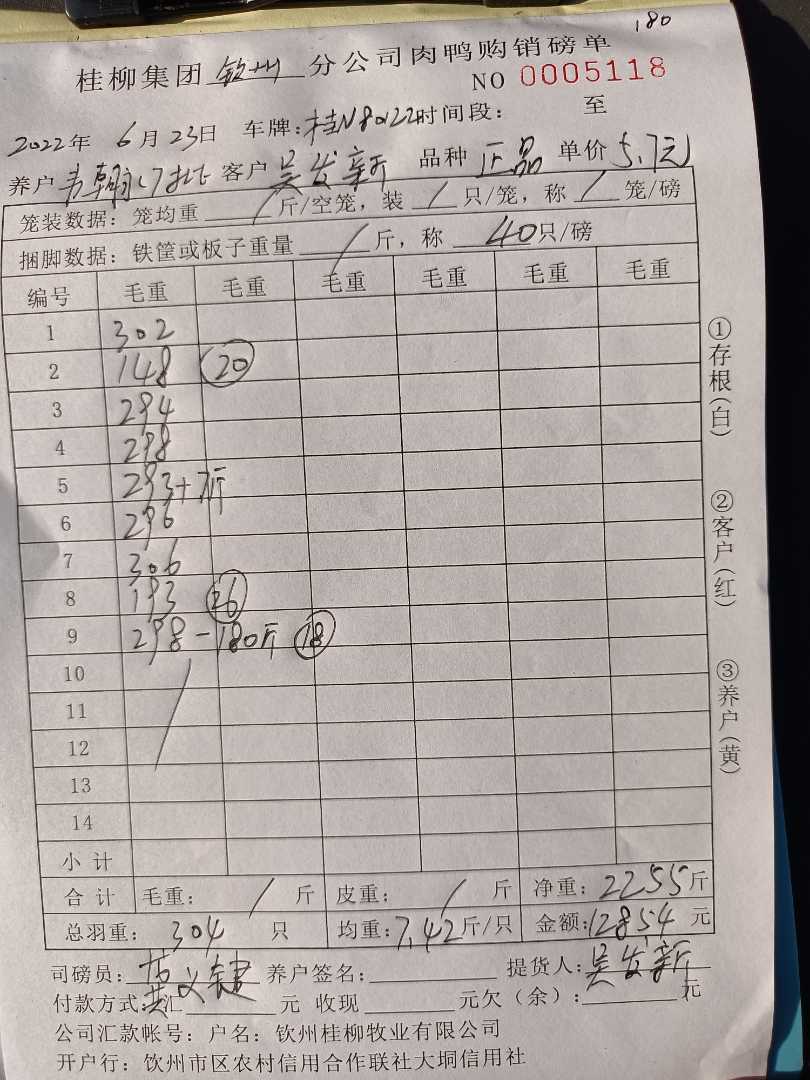 180
桂柳集团 钦州 分公司肉鸭购销磅单
NO 0005118
2022年 6月23日 车牌:桂N8022时间段: 至
养户 韦朝 17批 客户 吴发新 品种 正品 单价 5.7元
笼装数据: 笼均重 / 斤/空笼, 装 / 只/笼, 称 / 笼/磅
捆脚数据: 铁筐或板子重量 / 斤, 称 40只/磅
编号 毛重 毛重 毛重 毛重 毛重 毛重
1 302
2 148 20
3 294
4 298
5 293+7斤
6 296
7 306
8 193 26
9 298-180斤 18
10
11
12
13
14
小计
合计 毛重: / 斤 皮重: / 斤 净重: 2255斤
总羽重: 304 只 均重:7.42斤/只 金额:12854元
司磅员: 养户签名: 提货人:吴发新
付款方式: 汇 元 收现 元欠(余): 元
公司汇款帐号: 户名: 钦州桂柳牧业有限公司
开户行: 钦州市区农村信用合作联社大垌信用社
①存根(白)
②客户(红)
③养户(黄)